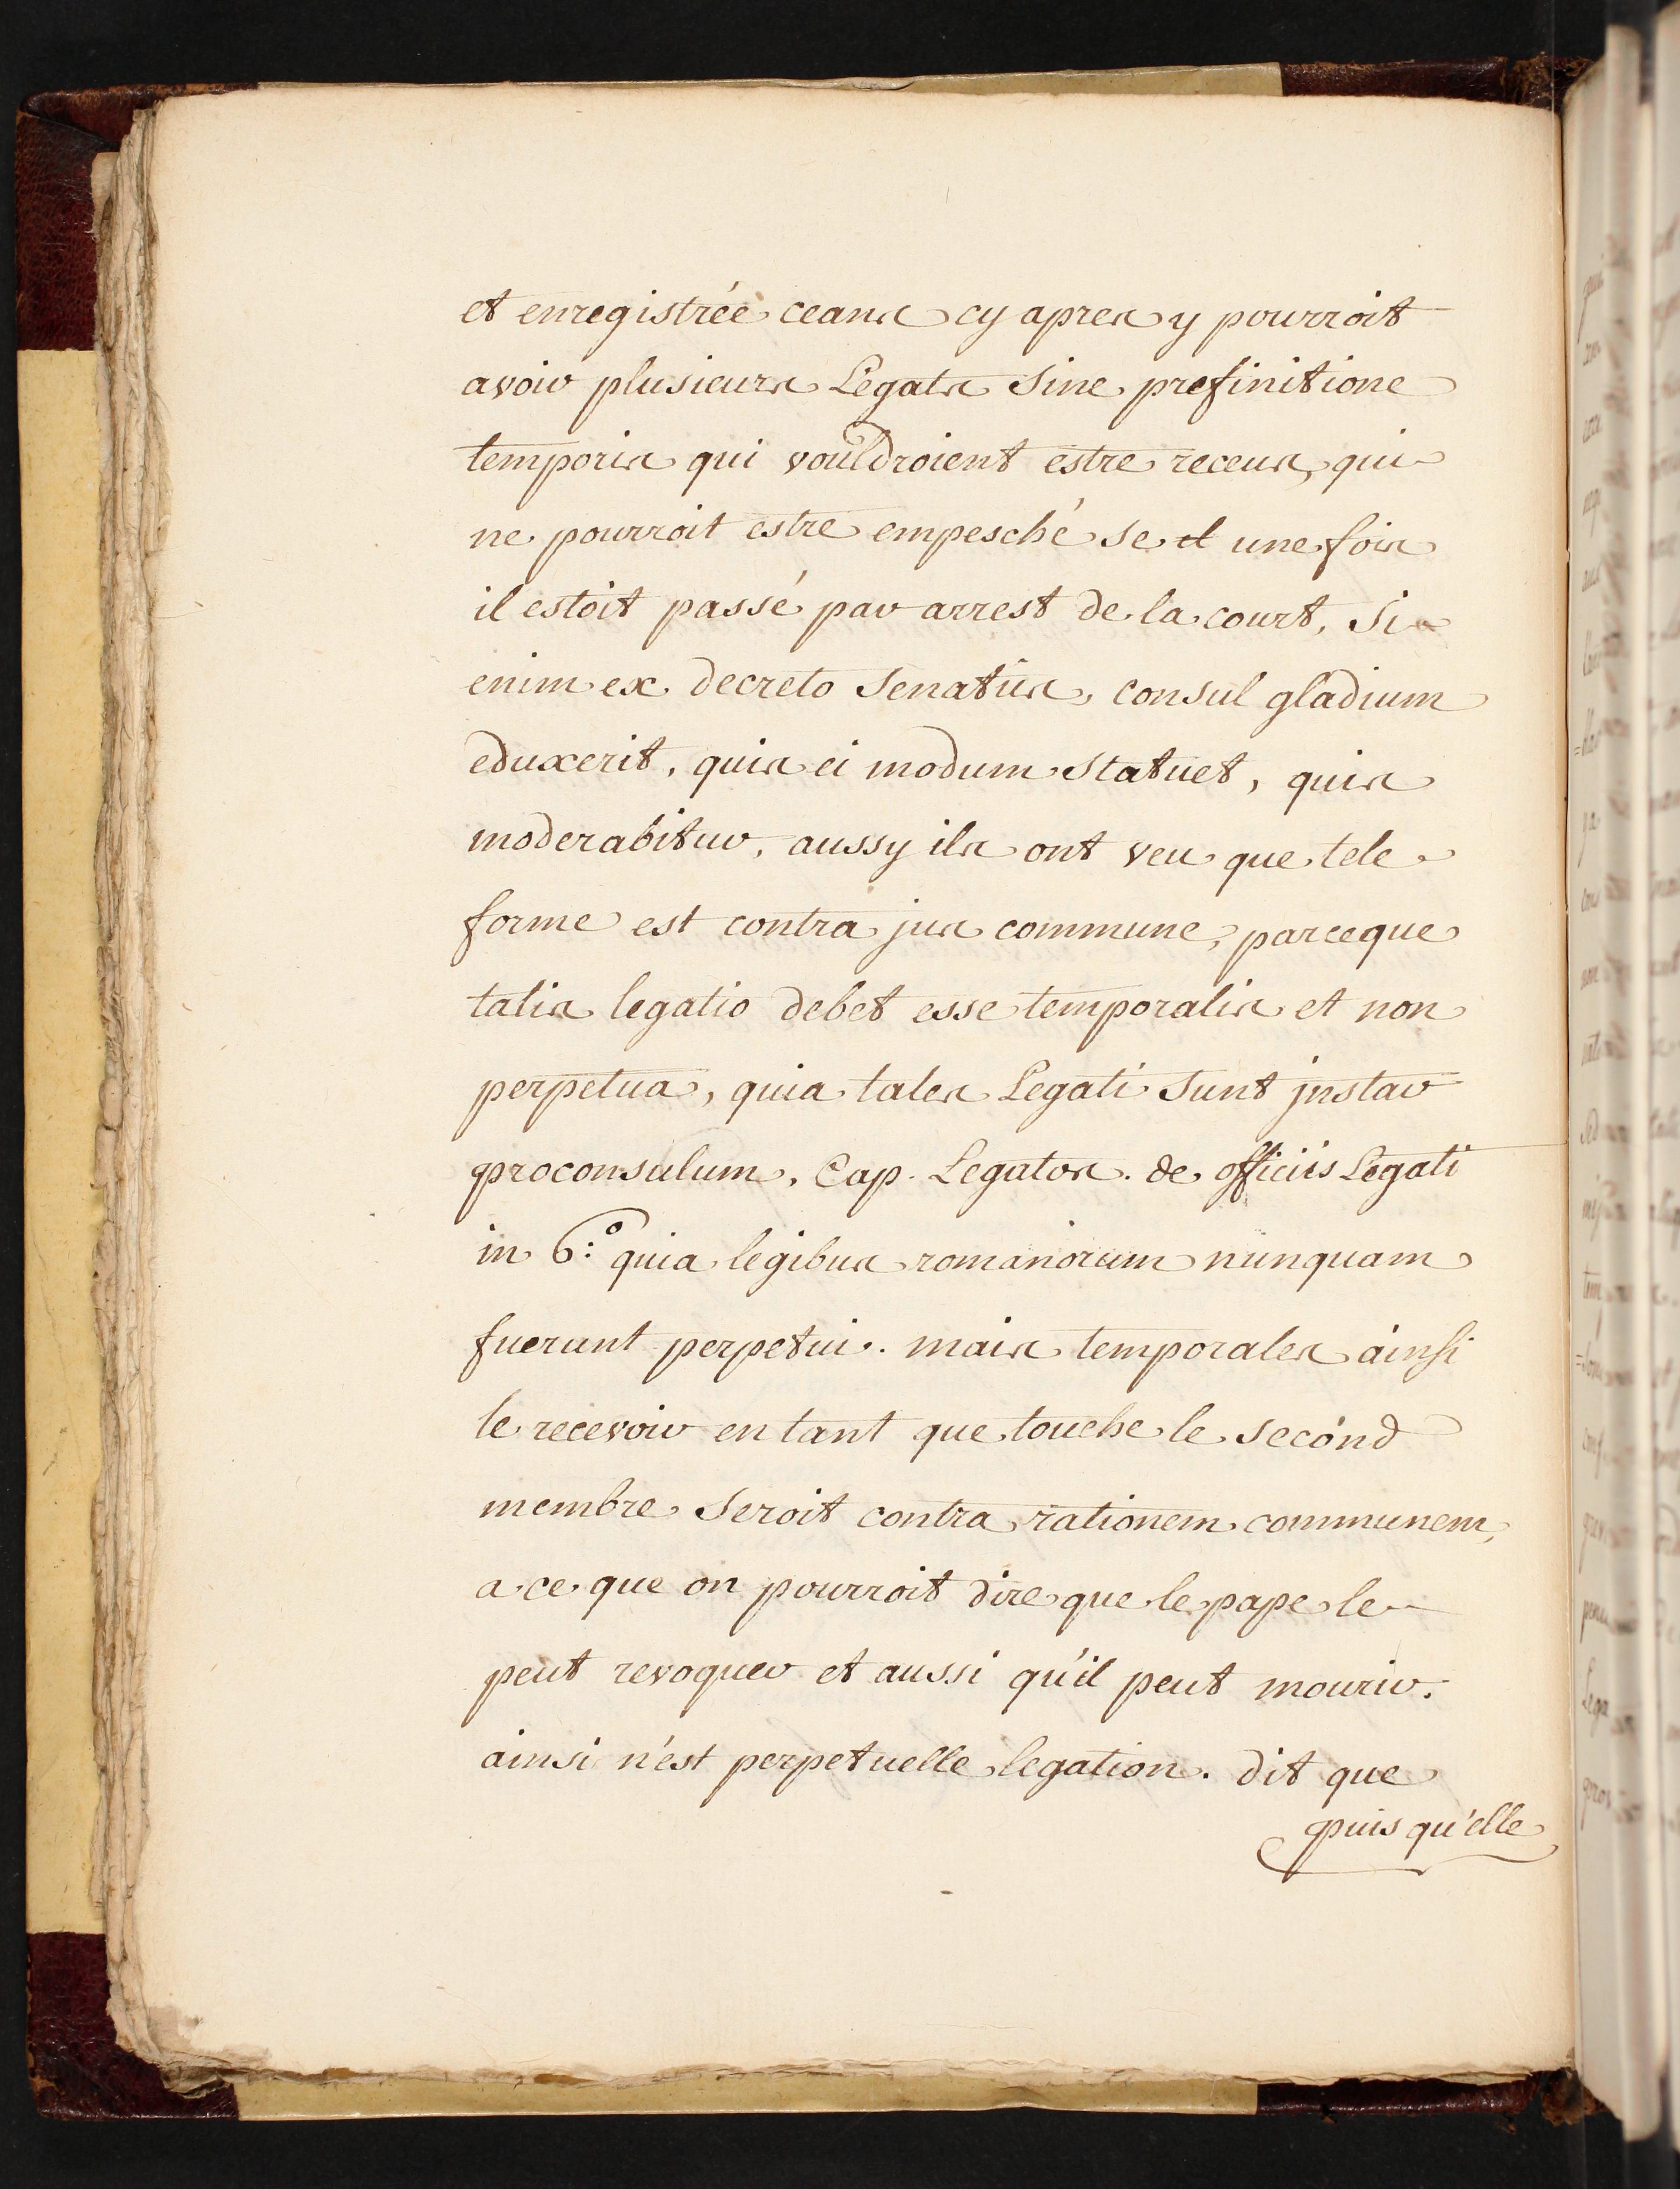 et enregistrée ceans cy apres y pourroit
avoir plusieurs Legats sine prefinitione
temporis qui vouldroient estre receus, qui
ne pourroit estre empesché se il une fois
il estoit passé par arrest de la court, Si
enim ex decreto Senatus, consul gladium
eduxerit, quis ei modum statuet, quis
moderabitur, aussy ils ont veu que tele
forme est contra jus commune, parceque
talis legatio debet esse temporalis et non
perpetua, quia tales Legati sunt jnstar
proconsulum, Cap. Legatos. de officiis Legati
in 6:º quia legibus romanorum nunquam
fuerunt perpetui. mais temporales ainsi
le recevoir en tant que touche le second
membre seroit contra rationem communem,
a ce que on pourroit dire que le pape le
peut revoquer et aussi qu'il peut mourir.
ainsi n'est perpetuelle legation. dit que
puis qu'elle